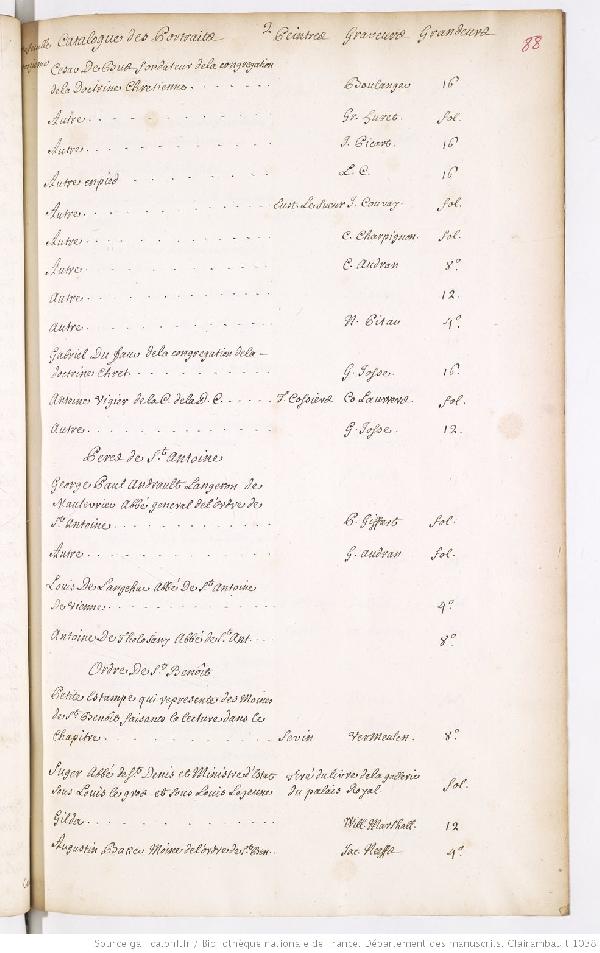 Catalogue des Portraits Peintres Graveurs Grandeurs 88
Cesar De Bus fondateur de la congregation
de la Doctrine Chretienne . . . . . . . Boulanger 16
Autre . . . . . . . . . . Gr. Huret fol.
Autre . . . . . . . . . . J. Picart 16
Autre en pied . . . . . . . . L. C. 16
Autre . . . . . . . . . . Eust. Le Sueur J. Couvay fol.
Autre . . . . . . . . . . C. Charpignon fol.
Autre . . . . . . . . . . C. Audran 8°
Autre . . . . . . . . . . 12.
Autre . . . . . . . . . . N. Pitau 4°
Gabriel Du Faur de la congregation de la
doctrine Chret. . . . . . . . G. Josse 16
Antoine Vigier de la C. de la D. C. . . . . J. Cossiers Co Lauwers fol.
Autre . . . . . . . . . . G. Josse 12.
Peres de St. Antoine
George Paul Andrault Langeron de
Mautevrier Abbé general de l'ordre de
St. Antoine . . . . . . . . P. Giffart fol.
Autre . . . . . . . . . . G. Audran fol.
Louis De Abbé De St. Antoine
de Vienne . . . . . . . . 4°
Antoine De Tholosany Abbé de St. Ant. . . . 8°
Ordre De St. Benoist
Petite Estampe qui represente des Moines
de St. Benoist faisants la lecture dans le
Chapitre . . . . . . . . . Sevin Vermeulen 8°
Suger Abbé de St. Denis et Ministre d'Estat Tiré du livre de la gallerie
sous Louis le gros et sous Louis Le jeune du palais Royal fol.
Gilda . . . . . . . . . . Will. Marshall 12
Augustin Baker Moine de l'ordre de St. Ben. Jac. Neeffs 4°
Source gallica.bnf.fr / Bibliothèque nationale de France. Département des manuscrits. Clairambault 1038